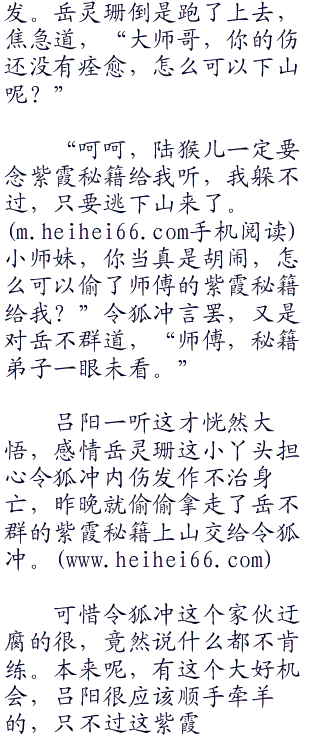 发。岳灵珊倒是跑了上去，
焦急道，“大师哥，你的伤
还没有痊愈，怎么可以下山
呢？”
“呵呵，陆猴儿一定要
念紫霞秘籍给我听，我躲不
过，只要逃下山来了。
(m.heihei66.com手机阅读)
小师妹，你当真是胡闹，怎
么可以偷了师傅的紫霞秘籍
给我？”令狐冲言罢，又是
对岳不群道，“师傅，秘籍
弟子一眼未看。”
吕阳一听这才恍然大
悟，感情岳灵珊这小丫头担
心令狐冲内伤发作不治身
亡，昨晚就偷偷拿走了岳不
群的紫霞秘籍上山交给令狐
冲。(www.heihei66.com)
可惜令狐冲这个家伙迂
腐的很，竟然说什么都不肯
练。本来呢，有这个大好机
会，吕阳很应该顺手牵羊
的，只不过这紫霞